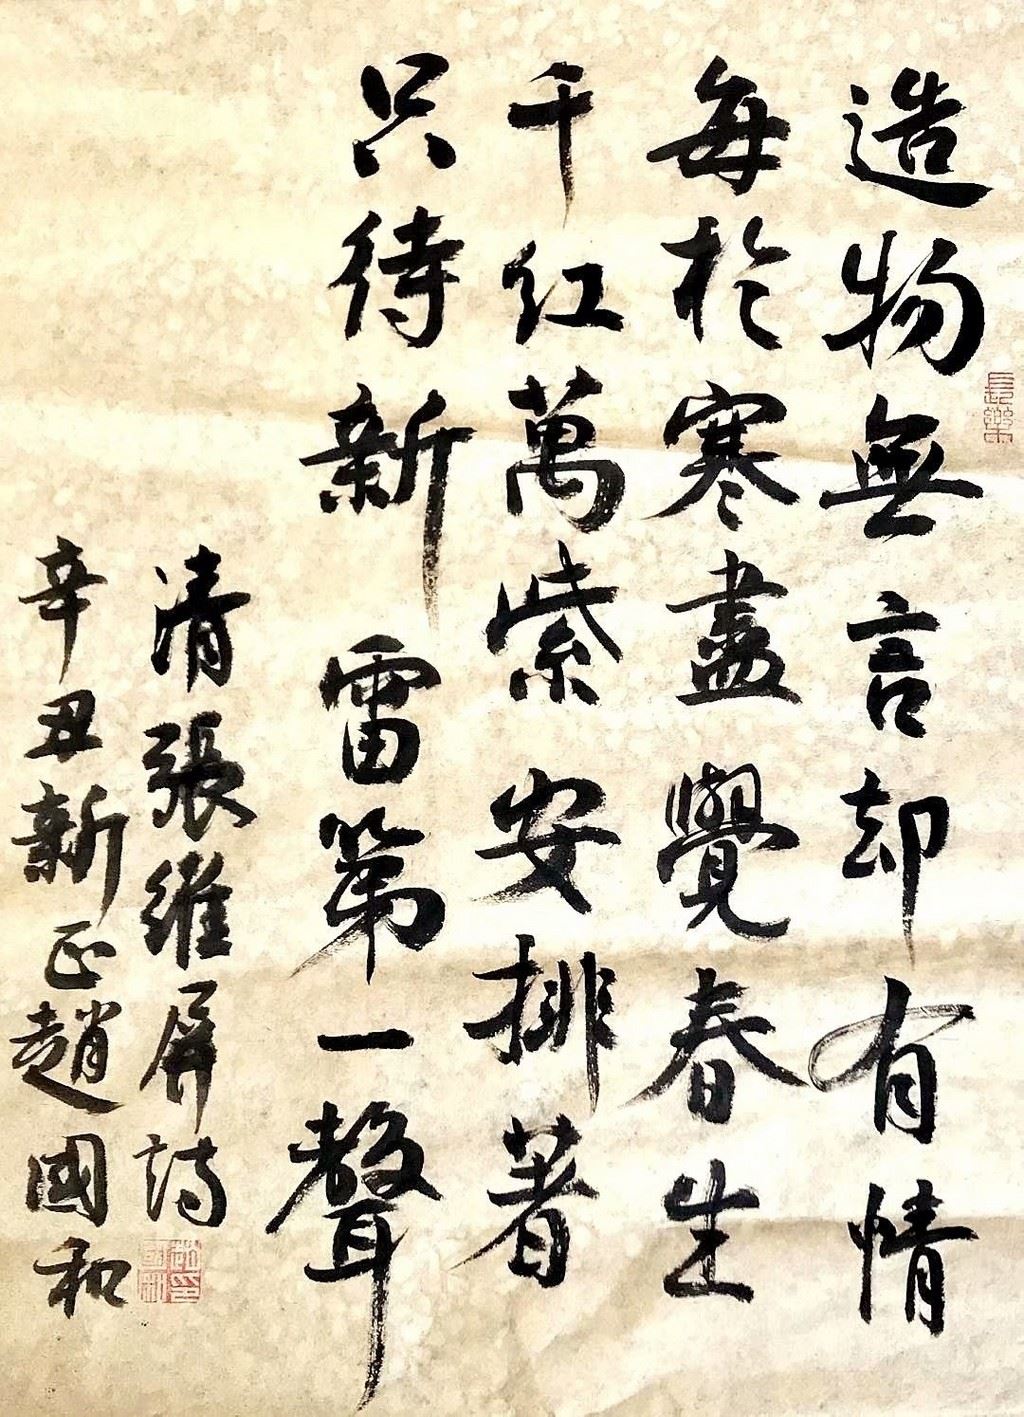 造物無言却有情
每於寒盡覺春生
千红萬紫安排著
只待新雷第一聲
清張維屏詩
辛丑新正趙國和
長樂
趙國和印